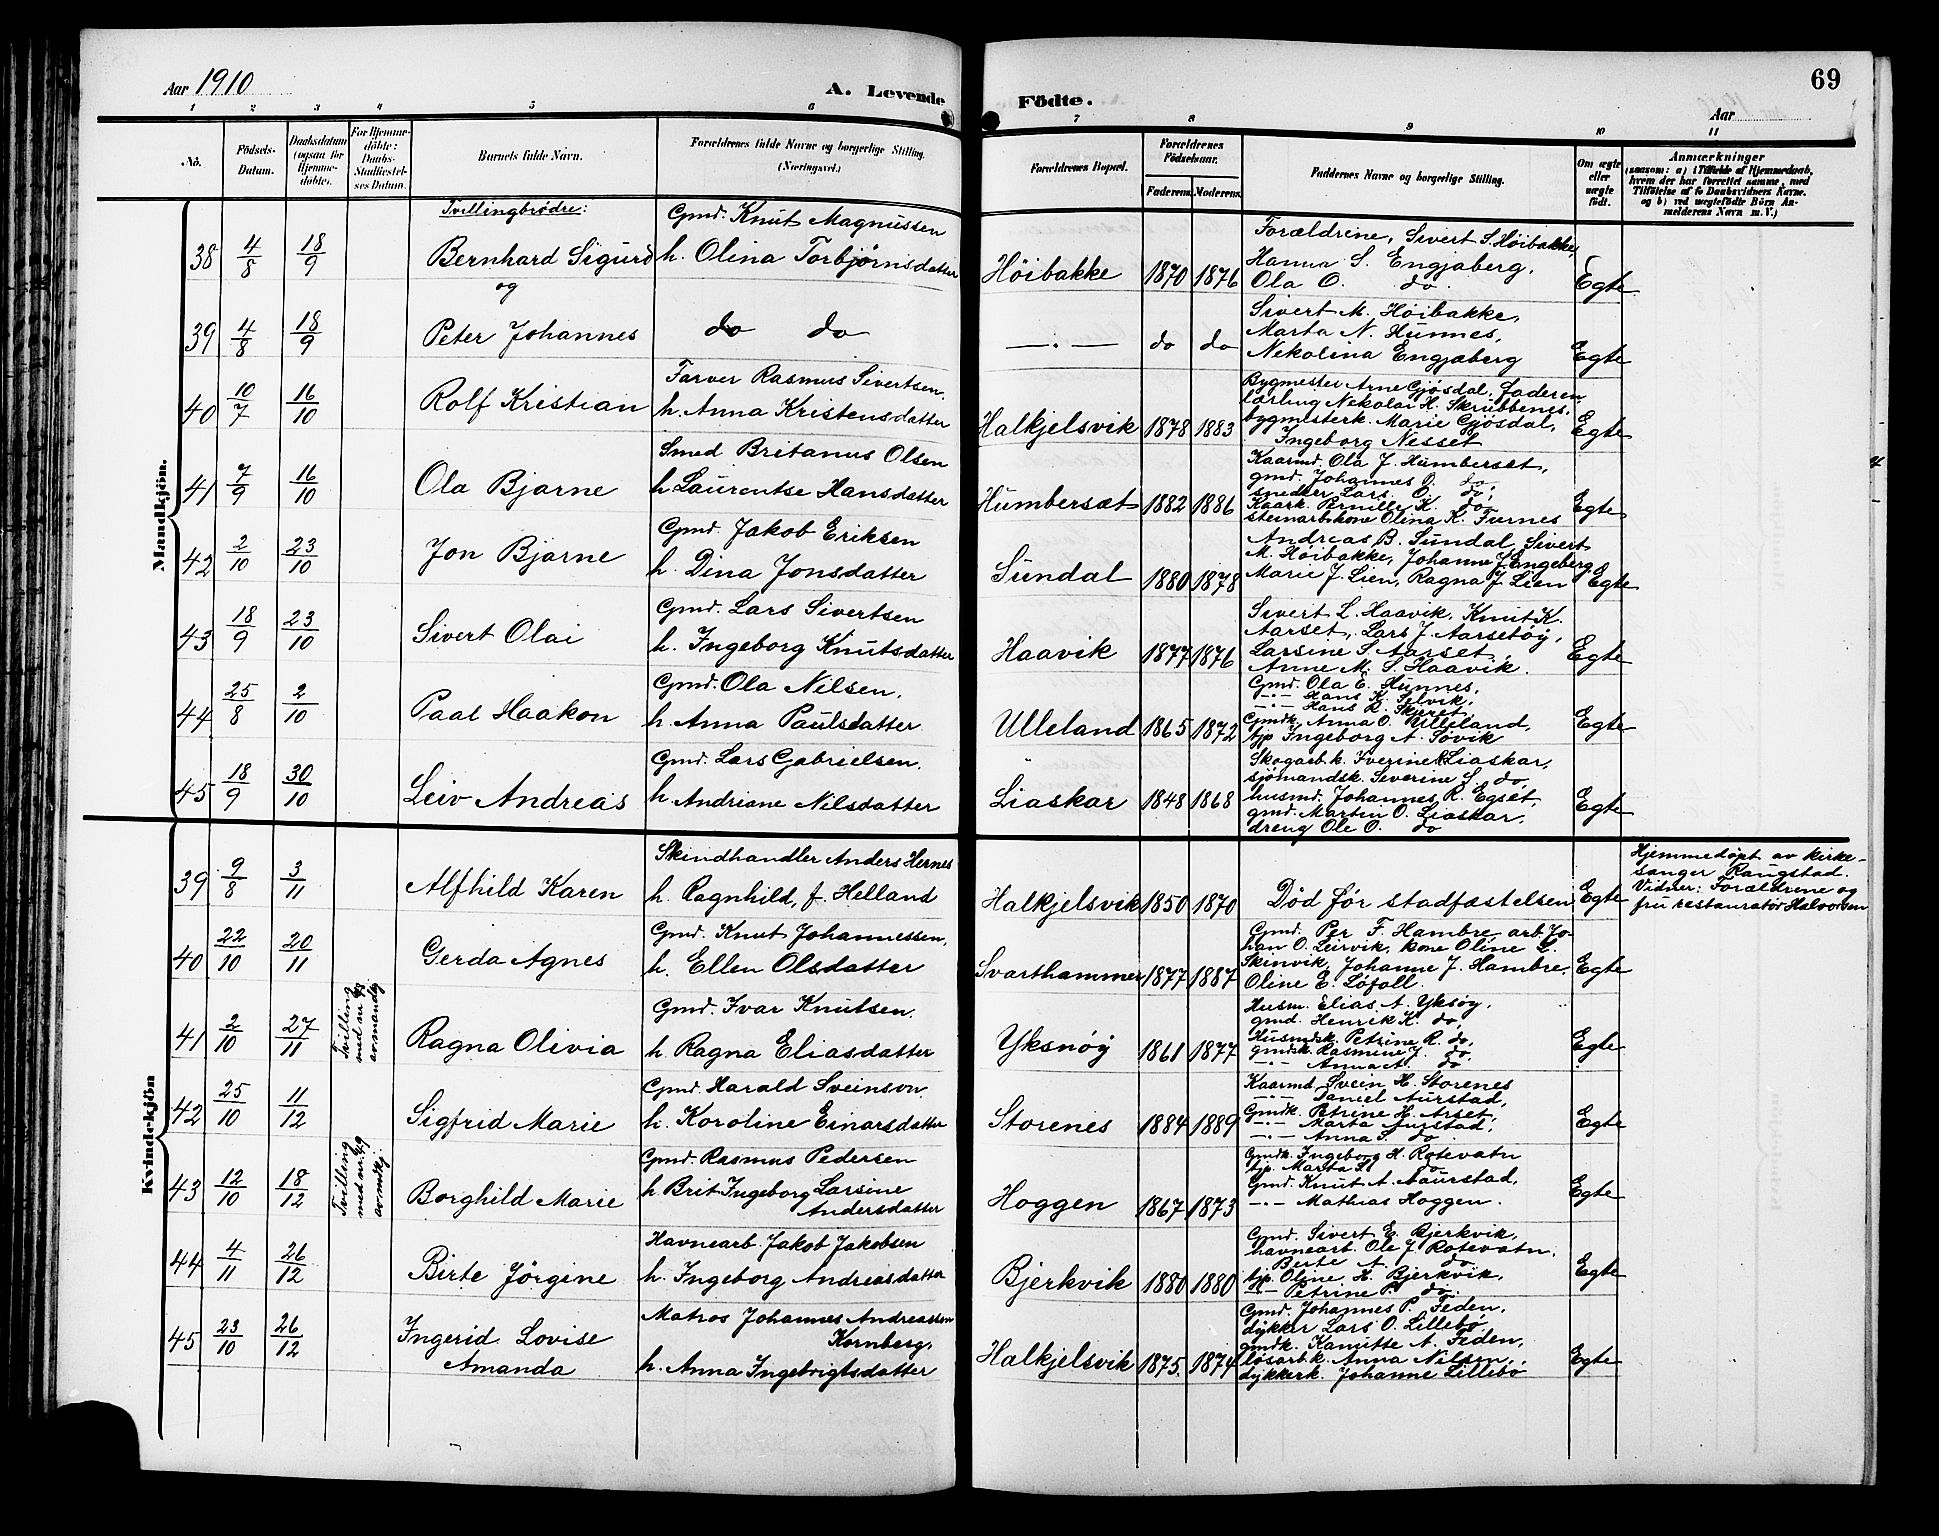 Aar 1910
A. Levende
Födte.
Aar
69
1 2 3 4 5 6 7 8 9 10 11
No.
Födsels-
Datum.
Daabsdatum
(ogsaa for
Hjemme-
döbte).
For Hjemme-
döbte:
Daabs-
Stadfæstel-
ses Datum.
Barnets fulde Navn.
Forældrenes fulde Navne og borgerlige Stilling.
(Næringsvei.)
Forældrenes Bopæl.
Forældrenes
Födselsaar.
Faderens. Moderens.
Faddernes Navne og borgerlige Stilling.
Om ægte
eller
uægte
födt.
Anmærkninger
(saasom: a) i Tilfælde af Hjemmedaab,
hvem der har forrettet samme, med
Tilföielse af to Daabsvidners Navne,
og b) ved uægtefödte Börn An-
melderens Navn m. V.)
Mandkjön.
Tvillingbrødre:
38 4/8 18/9 Bernhard Sigurd
og
Gmd. Knut Magnussen
h. Olina Torbjørnsdatter
Höibakke 1870 1876
Forældrene, Sivert S. Höibakke,
Hanna S. Engjaberg,
Ola O. do.
Egte
39 4/8 18/9 Peter Johannes
do do
—"— do do
Sivert M. Höibakke,
Marta N. Hunnes,
Nekolina Engjaberg
Egte
40 10/7 16/10 Rolf Kristian
Farver Rasmus Sivertsen,
h. Anna Kristensdatter
Halkjelsvik 1878 1883
Bygmester Arne Gjøsdal, Faderen
lærling Nekolai H. Skrubbenes,
bygmesterk. Marie Gjøsdal,
Ingeborg Nesset
Egte
41 7/9 16/10 Ola Bjarne
Smed Britanus Olsen
h Laurentse Hansdatter
Humbersæt 1882 1886
Kaarmd. Ola J. Humberset,
gmd. Johannes O. do,
snedker Lars O. do,
Kaark. Pernille K. do
steinarb.kone Olina K. Fvernes
Egte
42 2/10 23/10 Jon Bjarne
Gmd. Jakob Eriksen
h. Dina Jonsdatter
Sundal 1880 1878
Andreas B. Sundal, Sivert
M. Höibakke, Johanne J. Engeberg
Marie J. Lien, Ragna J. Lien
Egte
43 18/9 23/10 Sivert Olai
Gmd. Lars Sivertsen
h. Ingeborg Knutsdatter
Haavik 1877 1876
Sivert L. Haavik, Knut K.
Aarset, Lars J. Aarsetøy,
Larsine S. Aarset,
Anne M. S. Haavik.
Egte
44 25/8 2/10 Paal Haakon
Gmd. Ola Nilsen,
h. Anna Paulsdatter
Ulleland 1865 1872
Gmd. Ola E. Hunnes,
—"— Hans K. Selvik,
—"— Hans K. Skjeret,
Gmdk. Anna O. Ulleland,
tjp Ingeborg A. Søvik
Egte
45 18/9 30/10 Leiv Andreas
Gmd. Lars Gabrielsen,
h. Andriane Nilsdatter
Liaskar 1848 1868
Skogarb.k. Iverine Liaskar,
sjömandsk. Severine S. do,
husmd. Johannes R. Egset,
gmd. Martin O. Liaskar,
dreng Ole O. do
Egte
Kvindekjön
39 9/8 3/11 Alfhild Karen
Skindhandler Anders Hernes
h. Ragnhild, f. Helland
Halkjelsvik 1850 1870
Död før stadfæstelsen
Egte
Hjemmedøpt av kirke-
sanger Raugstad.
Vidner: Forældrene og
fru restauratør Halvorsen
40 22/10 20/11 Gerda Agnes
Gmd. Knut Johannessen,
h. Ellen Olsdatter
Svarthammer 1877 1887
Gmd. Per F. Hambre, arb. Jo-
han O. Leirvik, kone Oline L.
Skinvik, Johanne J. Hambre,
Oline E. Løfoll.
Egte
41 2/10 27/11
Tvilling
med nr 48
av mandkj
Ragna Olivia
Gmd. Ivar Knutsen.
h. Ragna Eliasdatter
Yksnøy 1861 1877
Husm. Elias A. Yksøy,
gmd. Henrik K. do,
Husmdk. Petrine R. do,
gmdk. Rasmine J. do,
—"— Anna A. do
Egte
42 25/10 11/12 Sigfrid Marie
Gmd. Harald Sveinson
h. Koroline Einarsdatter
Storenes 1884 1889
Kaarmd Svein H. Storenes
—"— Daniel Aurstad,
Gmdk. Petrine H. Arset,
—"— Marta Aurstad,
—"— Anna S. do
Egte
43 12/10 18/12
Tvilling
med nr. 49
av mdkj.
Borghild Marie
Gmd. Rasmus Pedersen
h Brit Ingeborg Larsine
Andersdatter
Hoggen 1867 1873
Gmdk. Ingeborg H. Rotevatn
tjp. Marta S. do
Gmd. Knut A. Aaurstad,
—"— Mathias Hoggen.
Egte
44 4/11 26/12 Birte Jörgine
Havnearb. Jakob Jakobsen
h. Ingeborg Andreasdatter
Bjerkvik 1880 1880
Gmd. Sivert E. Bjerkvik,
havnearb. Ole J. Rotevatn,
Berte A. do
tjp. Oline K. Bjerkvik,
—"— Petrine P. do.
Egte
45 23/10 26/12 Ingerid Lovise
Amanda
Matros Johannes Andreassen
Kornberg,
h. Anna Ingebrigtsdatter
Halkjelsvik 1875. 1874
Gmd. Johannes P. Feden,
dykker Lars O. Lillebø
gmdk. Kanutte A. Feden,
løsarb.k. Anna Nilsen,
dykkerk. Johanne Lillebø
Egte